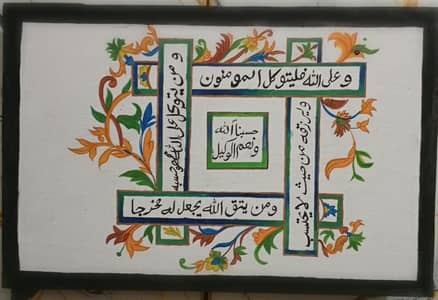 وعلى الله فليتوكل المومنون
ومن يتق الله يجعل له مخرجا
ويرزقه من حيث لا يحتسب
ومن يتوكل على الله فهو حسبه
حسبنا الله
ونعم الوكيل